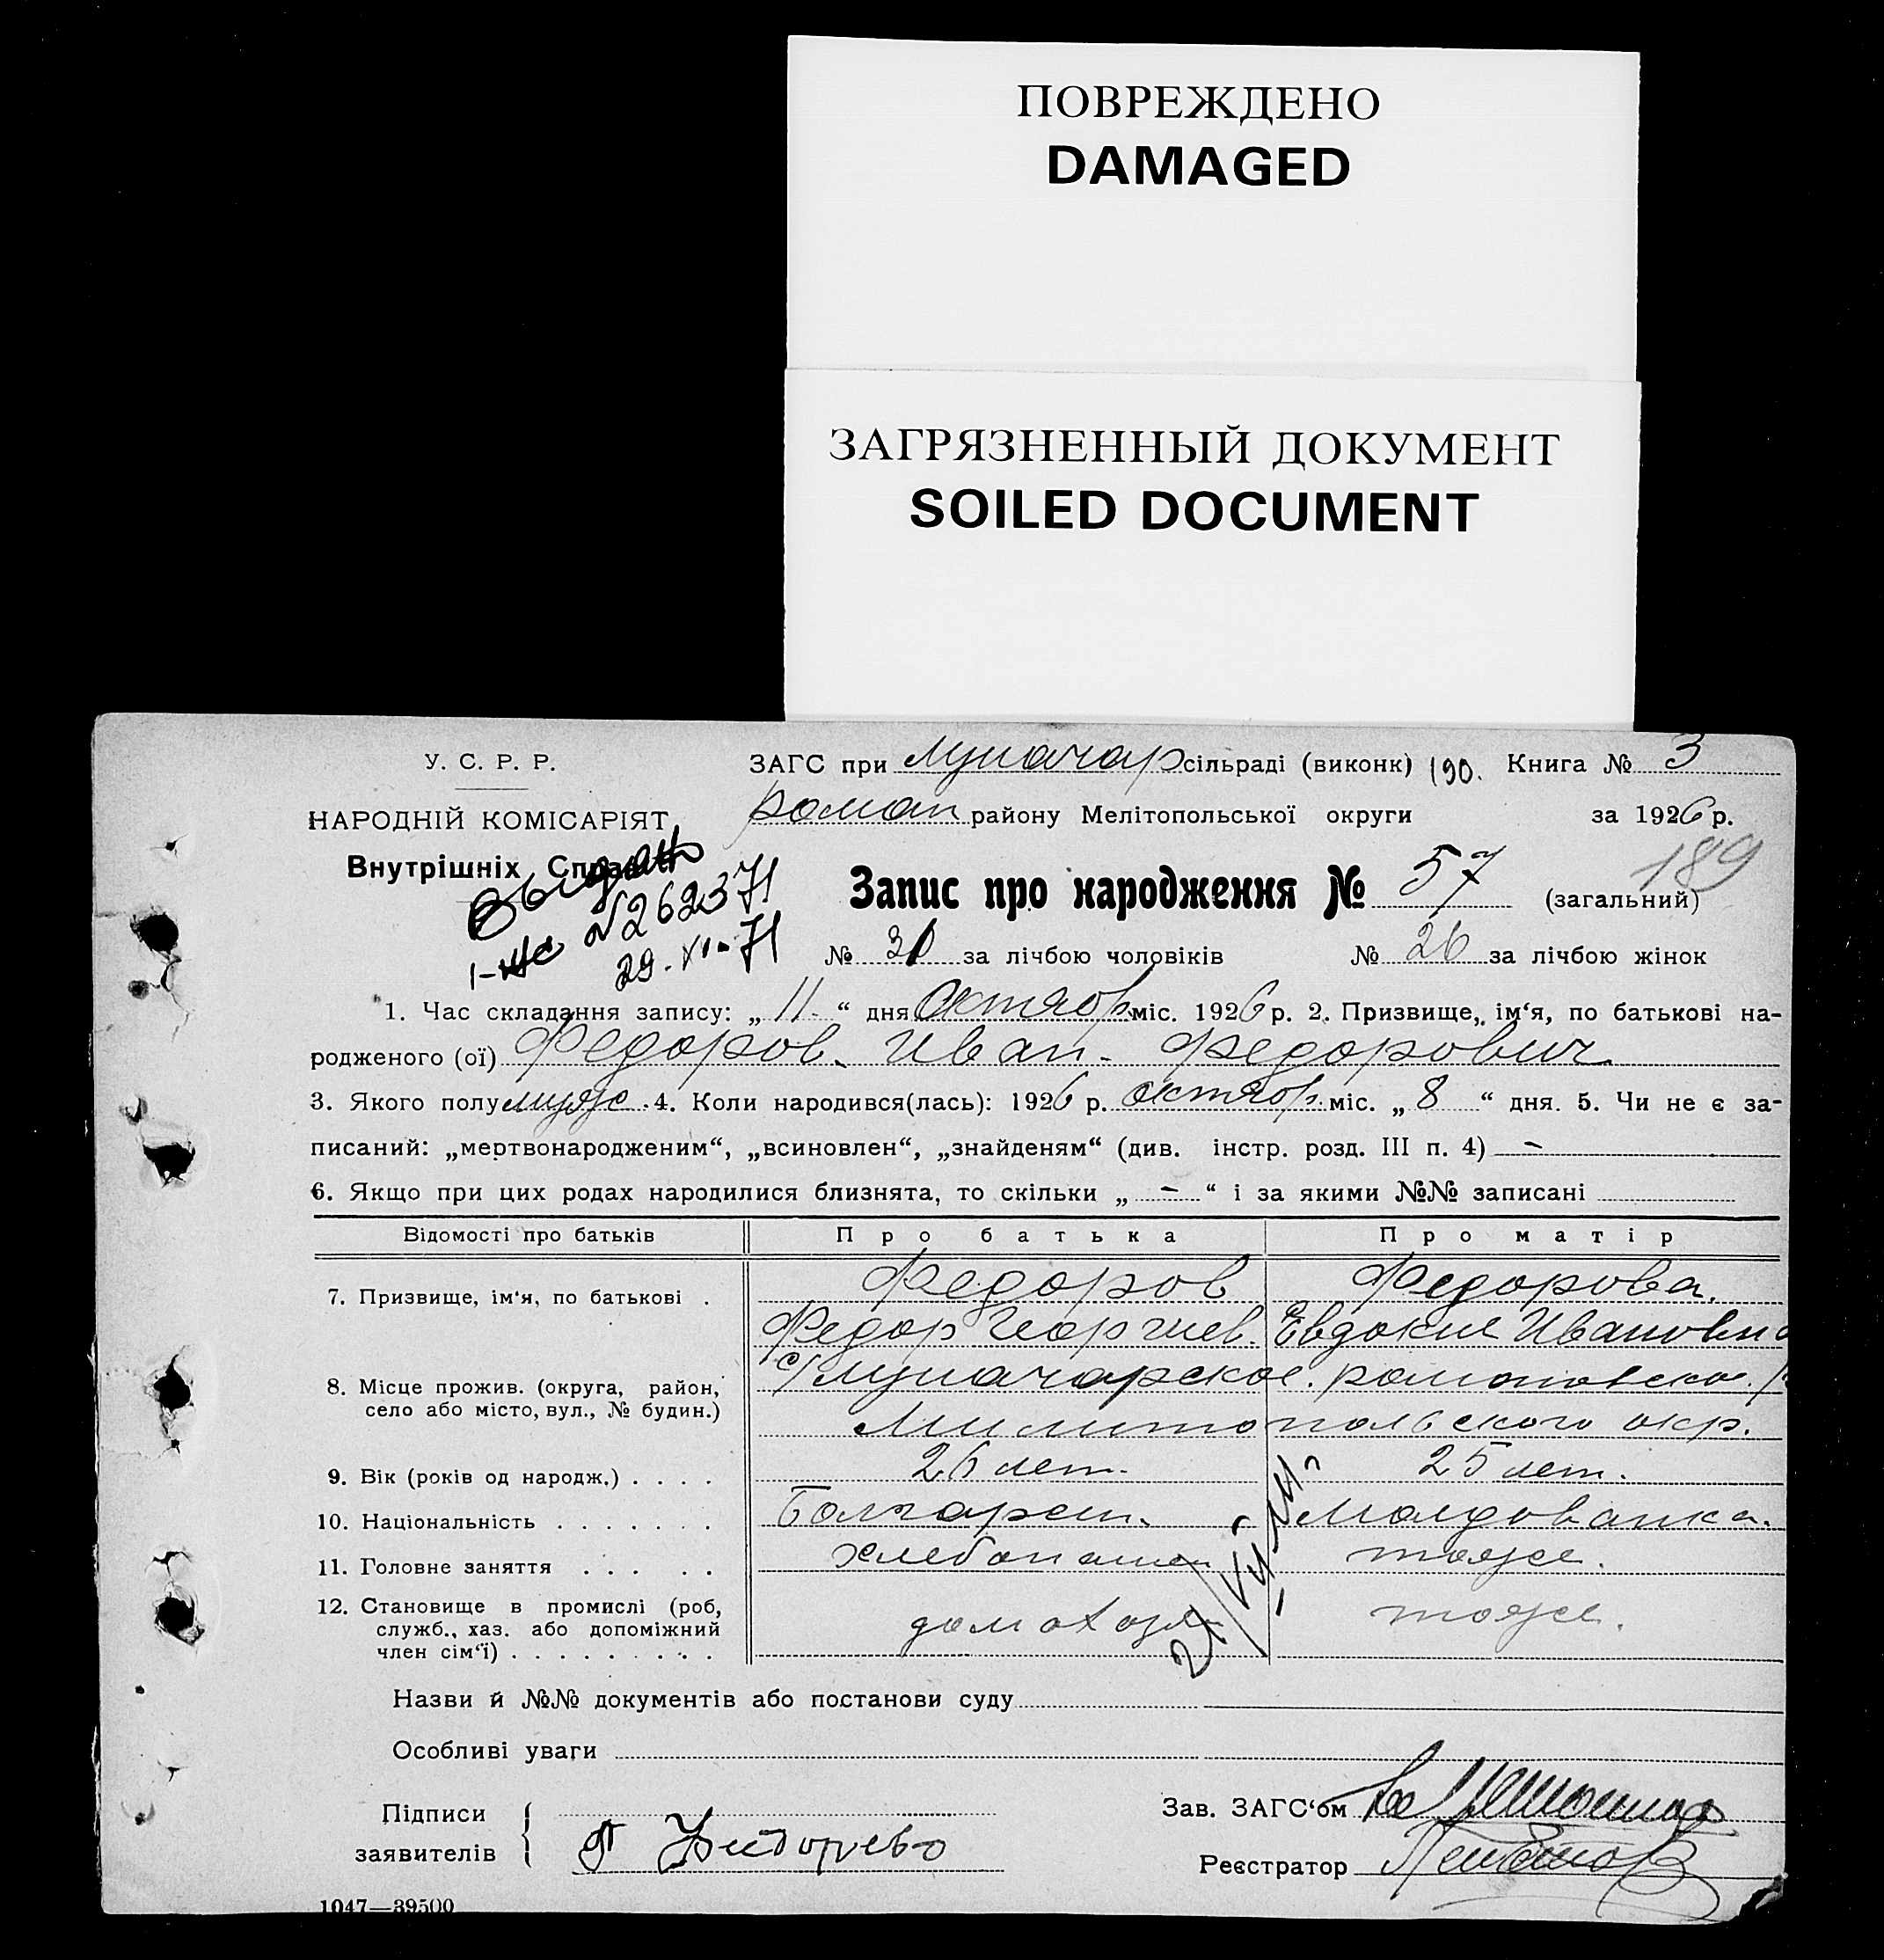 ПОВРЕЖДЕНО
DAMAGED
ЗАГРЯЗНЕННЫЙ ДОКУМЕНТ
SOILED DOCUMENT
У. С. Р. Р.
ЗАГС при Луначар сільраді (виконк) 190. Книга № 3
НАРОДНІЙ КОМІСАРІЯТ
роман району Мелітопольської округи за 1926 р.
Внутрішніх Справ
189
Выдано
Запис про народження № 57 (загальний)
№262371
29.XI-71
№ 31 за лічбою чоловіків № 26 за лічбою жінок
1. Час складання запису: „11“ дня Октябр міс. 1926 р. 2. Призвище, ім‘я, по батькові на-
родженого (ої) Федоров Иван Федорович
3. Якого полу мужс. 4. Коли народився(лась): 1926 р. октябр. міс. „8“ дня. 5. Чи не є за-
писаний: „мертвонародженим“, „всиновлен“, „знайденям“ (див. інстр. розд. III п. 4) —
6. Якщо при цих родах народилися близнята, то скільки „—“ і за якими №№ записані
Відомості про батьків Про батька Про матір
7. Призвище, ім‘я, по батькові . Федоров Федорова.
Федор Георгиев. Евдокия Ивановна
8. Місце прожив. (округа, район, с/Луначарское. романовско.
село або місто, вул., № будин.) Милитопольского окр.
9. Вік (років од народж.) . . . . 26 лет. 25 лет.
10. Національність . . . . . . . Болгарен. Молдованка.
11. Головне заняття . . . . . хлебопашец тоже.
12. Становище в промислі (роб, домохозя тоже.
служб., хаз. або допоміжний
член сім‘ї) . . . . . . . . .
Назви й №№ документів або постанови суду
Особливі уваги
Підписи Зав. ЗАГС‘ом
заявителів
Реєстратор
1047—39500